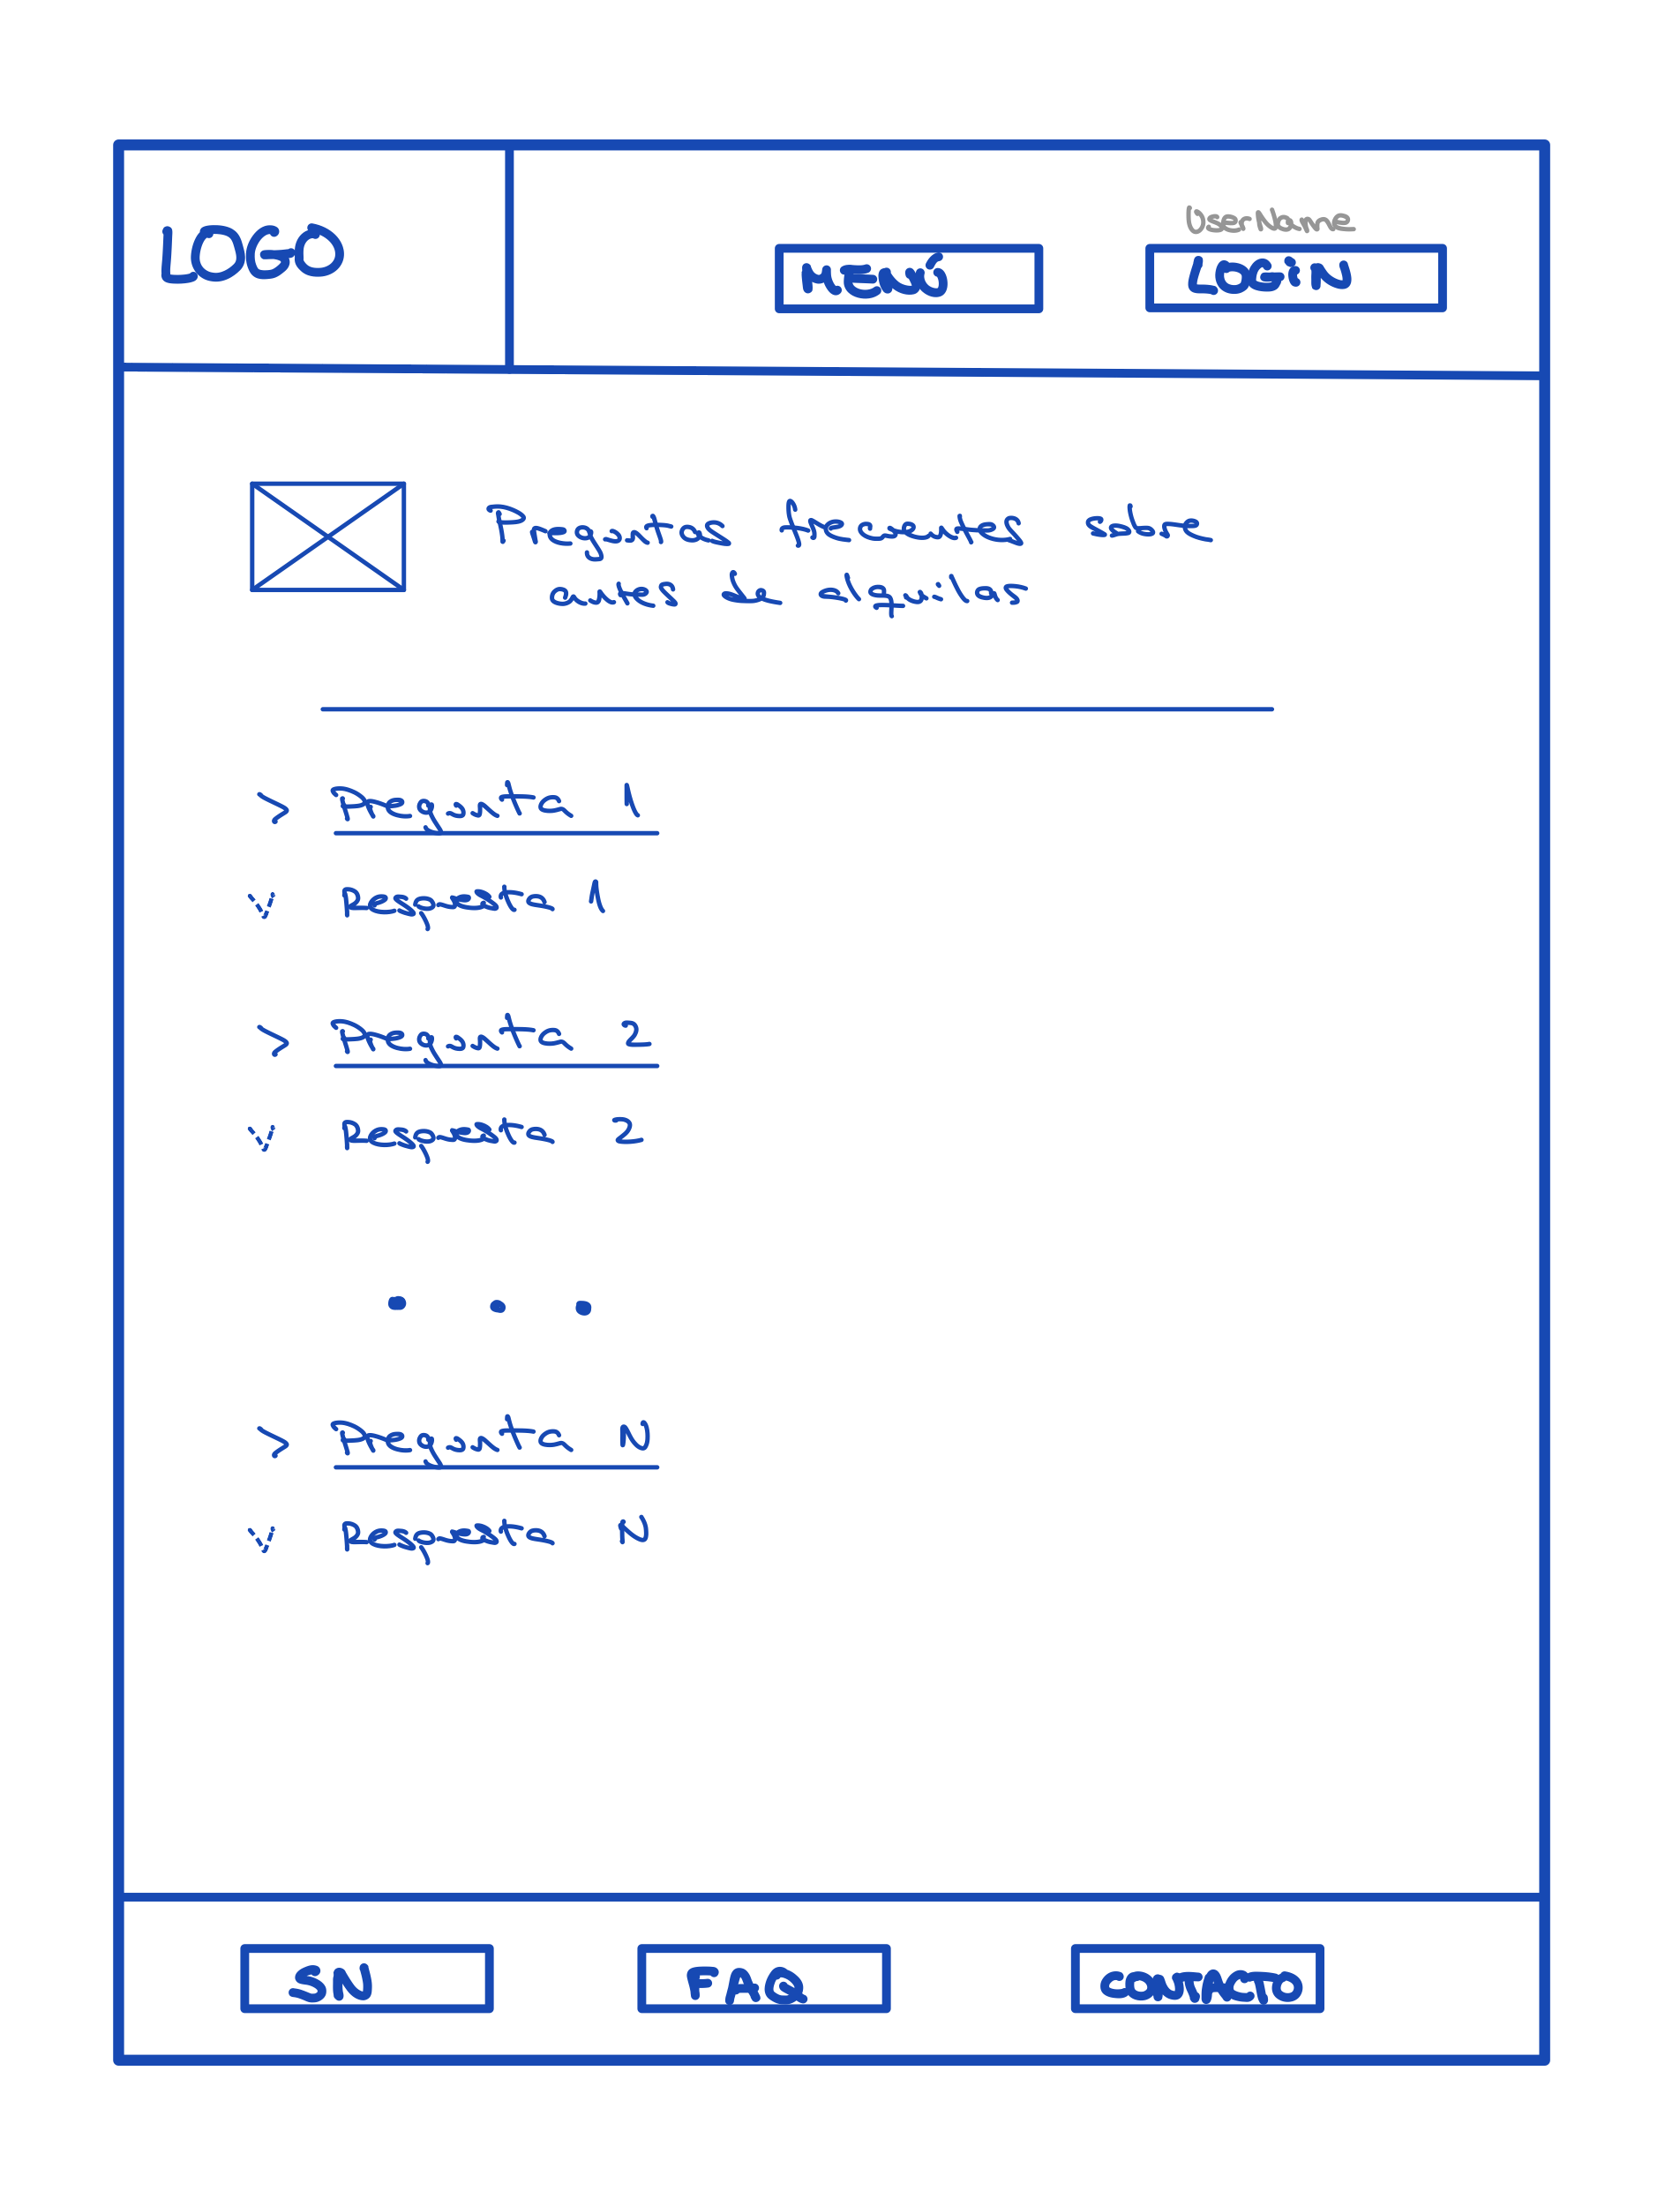 LOGO
UserName
MENÚ
LOGIN
Preguntas frecuentes sobre
antes de alquilar
> Pregunta 1
v Respuesta 1
> Pregunta 2
v Respuesta 2
. . .
> Pregunta N
v Respuesta N
SN
FAQ
CONTACTO